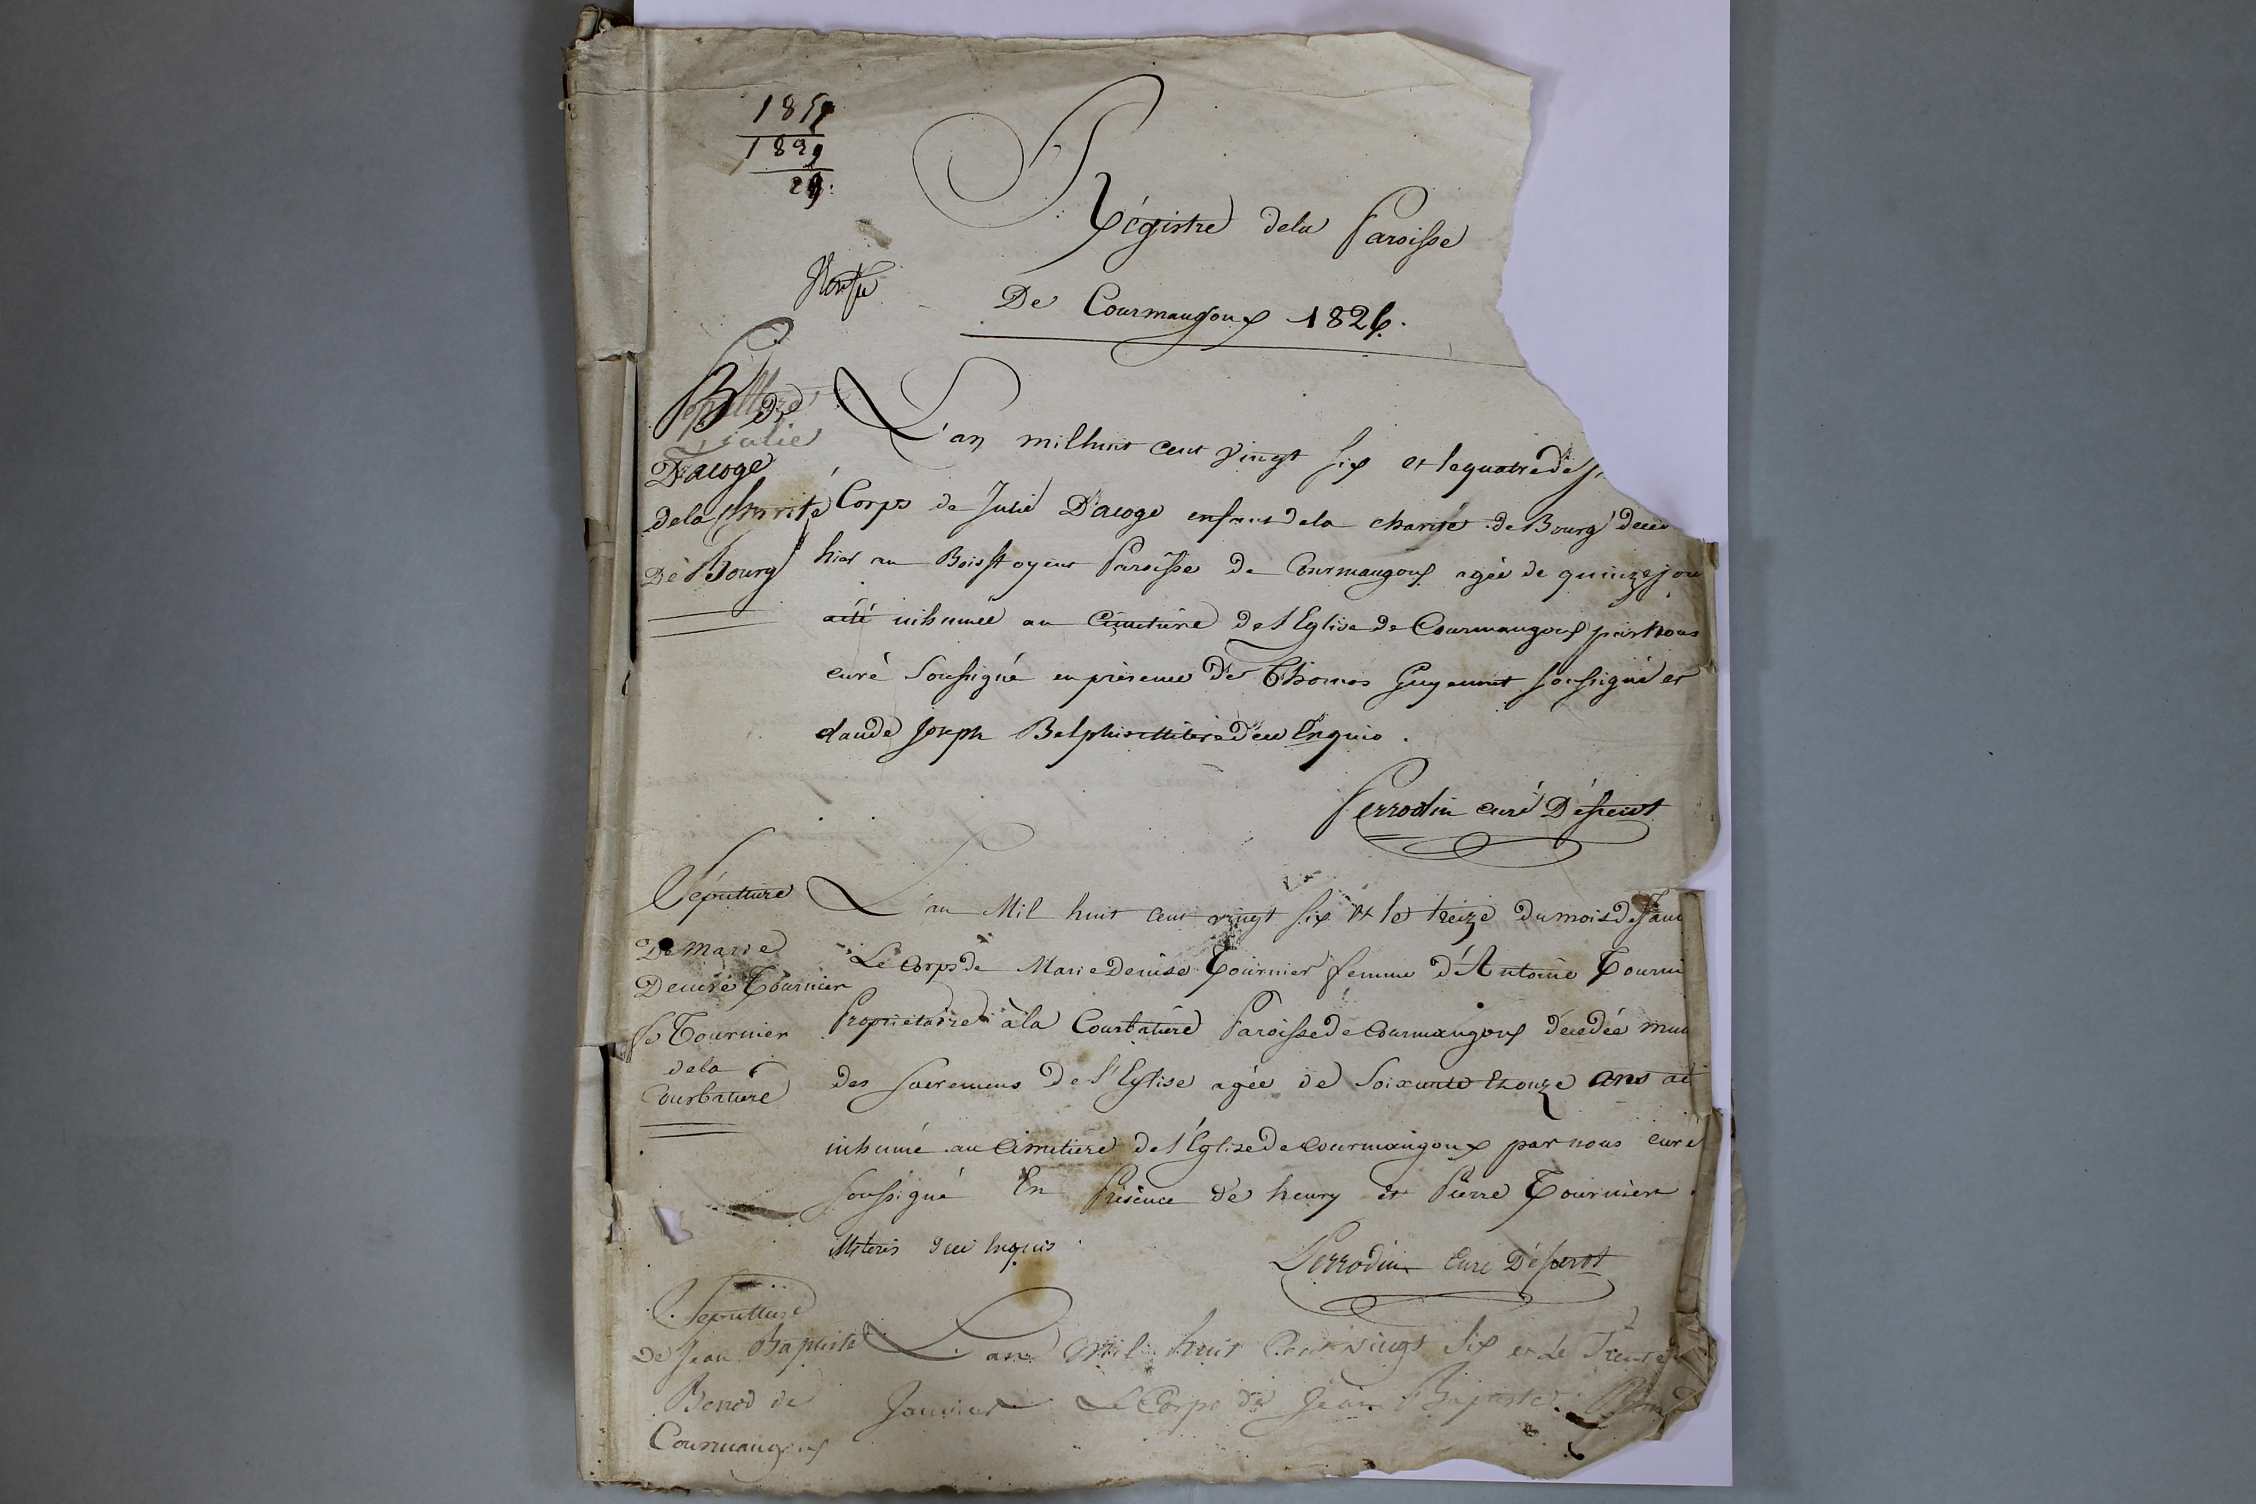 1829
29.
Régistre dela Paroisse
De Courmangoux 1826.
Sépulture
Julie
D'acoge
dela charité
De Bourg
L'an milhuit cent vingt six et lequatre de
Corps de Julie D'acoge enfant dela charité de Bourg décé
hier au Paroisse de Courmangoux agée de quinze jou
aété inhumée au Cimetiere de l'Eglise de Courmangoux par nous
curé soussigné en présence de Thomas soussigné et
claude Joseph Belphis illiteré d'eu Enquis.
Perrodin curé
Sépulture
De marie
Denise Tournier
fe Tournier
dela
Courbatiere
L'an Mil huit cent vingt six et le treize du mois de Janv
Le Corps de Marie Denise Tournier femme d'Antoine Tourni
Propriétaire à la Courbatiere Paroisse de Courmangoux décedée mun
des sacremens de l'Eglise agée de soixante et onze ans aé
inhumé au Cimetiere de l'Eglise de Courmangoux par nous curé
soussigné En Présence de henry et Pierre Tournier
illiteris d'eu Enquis.
Perrodin Curé
Sépulture
de Jean Baptiste
Benod de
Courmangoux
L'an mil huit cent vingt six et Le Trente
Janvier Le Corps de Jean Baptiste